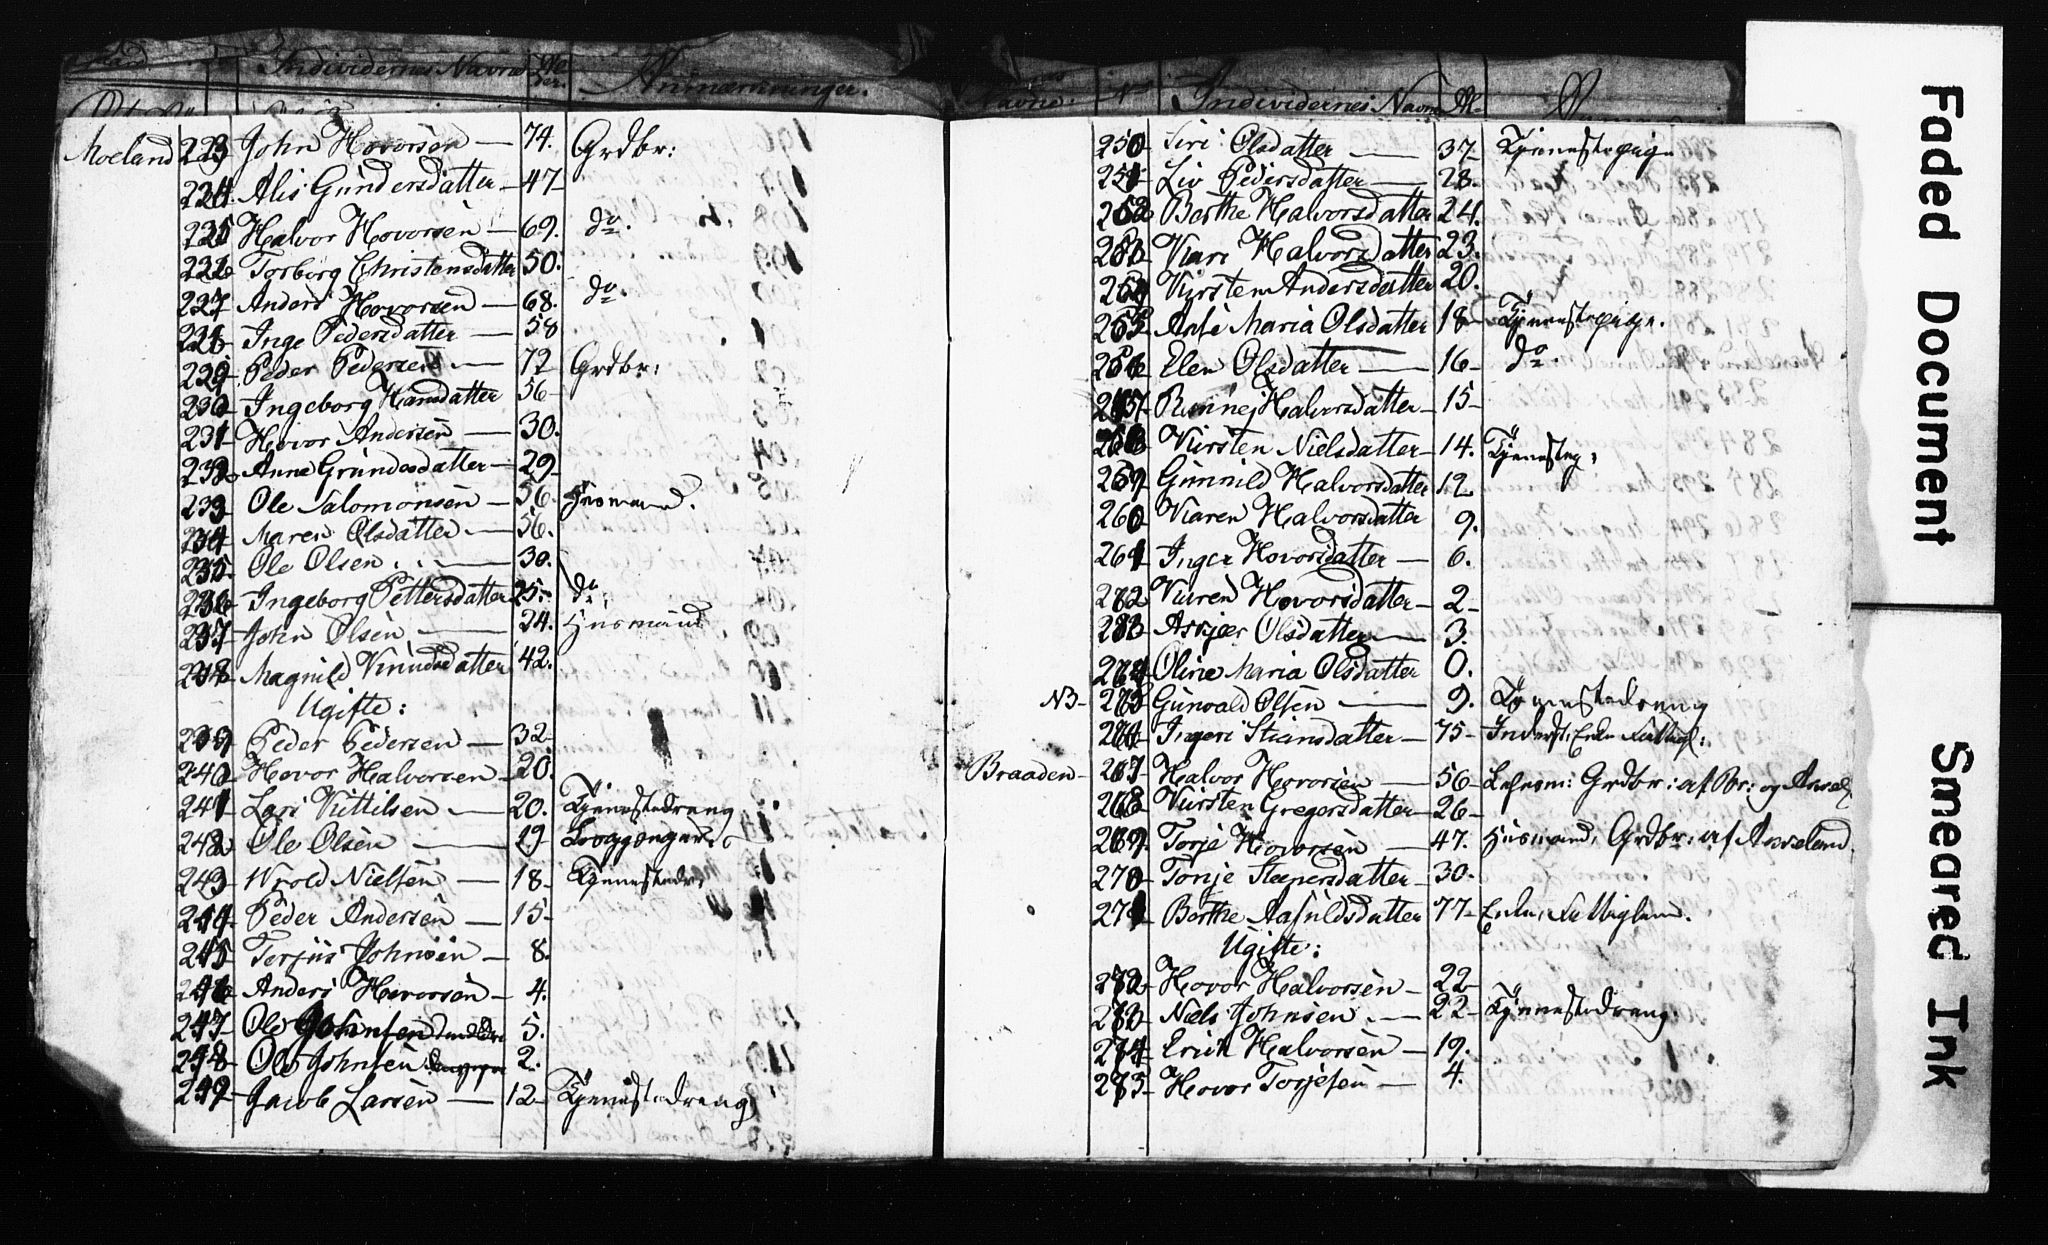 Individernes Navne Anmærkninger.
Moeland 223 John Hovorsen — 74. Grdbr:
224. Alis Gundersdatter — 47
225 Halvor Hovorsen — 69. do.
226 Torborg Christensdatter 50.
227 Anders Hovorsen — 68. do.
228 Inge Pedersdatter — 58
229 Peder Pedersen — 72 Grdbr:
230 Ingeborg Hansdatter 56
231 Hovor Andersen — 30.
232 Anne Gundersdatter — 29
233 Ole Salomonsen — 56. Husmand.
234 Maren Olsdatter — 56.
235 Ole Olsen — 30.
236 Ingeborg Pettersdatter 25 do
237 John Olsen — 24. Husmand
238 Magnild Knudsdatter 42.
Ugifte:
239 Peder Pedersen — 32
240 Hovor Halvorsen — 20.
241 Lars Kittilsen — 20. Tjenestedreng
242 Ole Olsen — 19
243 Wrold Nielsen — 18 Tjenestedr:
244 Peder Andersen — 15
245 Terjus Johnsen — 8.
246 Anders Hovorsen — 4.
247 Ole Johnsen den eldre 5.
248 Ole Johnsen den yngre 2.
249 Jacob Larsen — 12 Tjenestedreng
Navne. No Individernes Navne Al-
250 Siri Olsdatter — 37 Tjenestepige
251 Liv Pedersdatter — 28.
252 Berthe Halvorsdatter 24.
253 Kari Halvorsdatter 23.
254 Kirsten Andersdatter 20.
255 Anne Maria Olsdatter 18 Tjenestepige.
256 Elen Olsdatter — 16 do.
257 Rønnej Halvorsdatter 15
258 Kirsten Nielsdatter 14. Tjenestep:
259 Gunnild Halvorsdatter 12
260 Karen Halvorsdatter 9.
261 Inger Hovorsdatter — 6.
262 Karen Hovorsdatter — 2
263 Asbjør Olsdatter — 3.
264 Oline Maria Olsdatter 0.
N3 — 265 Gunvald Olsen — 9. Tjenestedreng
266 Ingeri Steinsdatter — 75 Inderst, Enke Fattigl:
Braaden 267 Halvor Hovorsen — 56 Grdbr: af Br: og
268 Kirsten Gregersdatter 26
269 Torje Hovorsen — 47. Husmand, Grdbr: af Asseland.
270 Tonje Steenersdatter 30.
271 Berthe Aasuldsdatter 77 Enke, Fattiglem.
Ugifte:
272 Hovor Halvorsen — 22
273 Niels Johnsen — 22 Tjenestedreng.
274 Erich Halvorsen — 19.
275 Hovor Torjesen — 4.
Faded Document
Smeared Ink